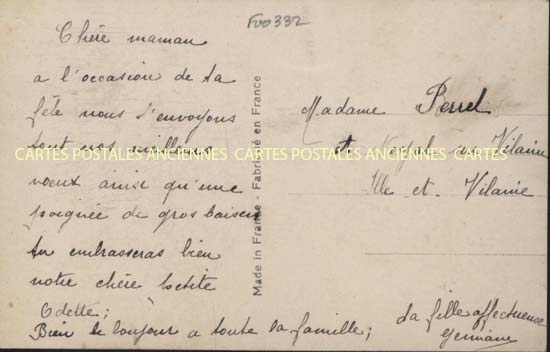 F00332
Chère maman
a l'occasion de ta
fête nous t'envoyons
tout nos meilleurs
voeux ainsi qu'une
poignée de gros baisers
tu embrasseras bien
notre chère petite
Odette;
Bien le bonjour a toute la famille;
ta fille affectueuse
Germaine
Made in France - Fabriqué en France
Madame Perrel
sur Vilaine
Ille et Vilaine
CARTES POSTALES ANCIENNES CARTES POSTALES ANCIENNES CARTES